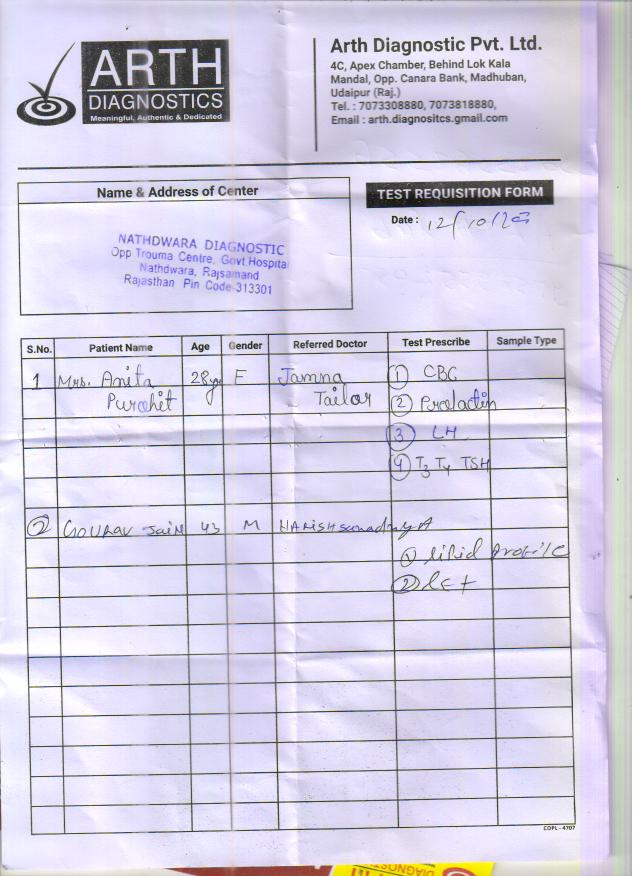 ARTH
DIAGNOSTICS
Meaningful, Authentic & Dedicated
Arth Diagnostic Pvt. Ltd.
4C, Apex Chamber, Behind Lok Kala
Mandal, Opp. Canara Bank, Madhuban,
Udaipur (Raj.)
Tel. : 7073308880, 7073818880,
Email : arth.diagnositcs.gmail.com
Name & Address of Center
NATHDWARA DIAGNOSTIC
Opp Trouma Centre, Govt Hospital
Nathdwara, Rajsamand
Rajasthan Pin Code-313301
TEST REQUISITION FORM
Date : 12/10/23
S.No. Patient Name Age Gender Referred Doctor Test Prescribe Sample Type
1 Mrs. Anita 28yr F Jamna 1 CBC
Purohit Tailor 2 Prolactin
3 LH
4 T3 T4 TSH
2 GOURAV JaiN 43 M HARISH
1 liPid Profile
2
COPL - 4707